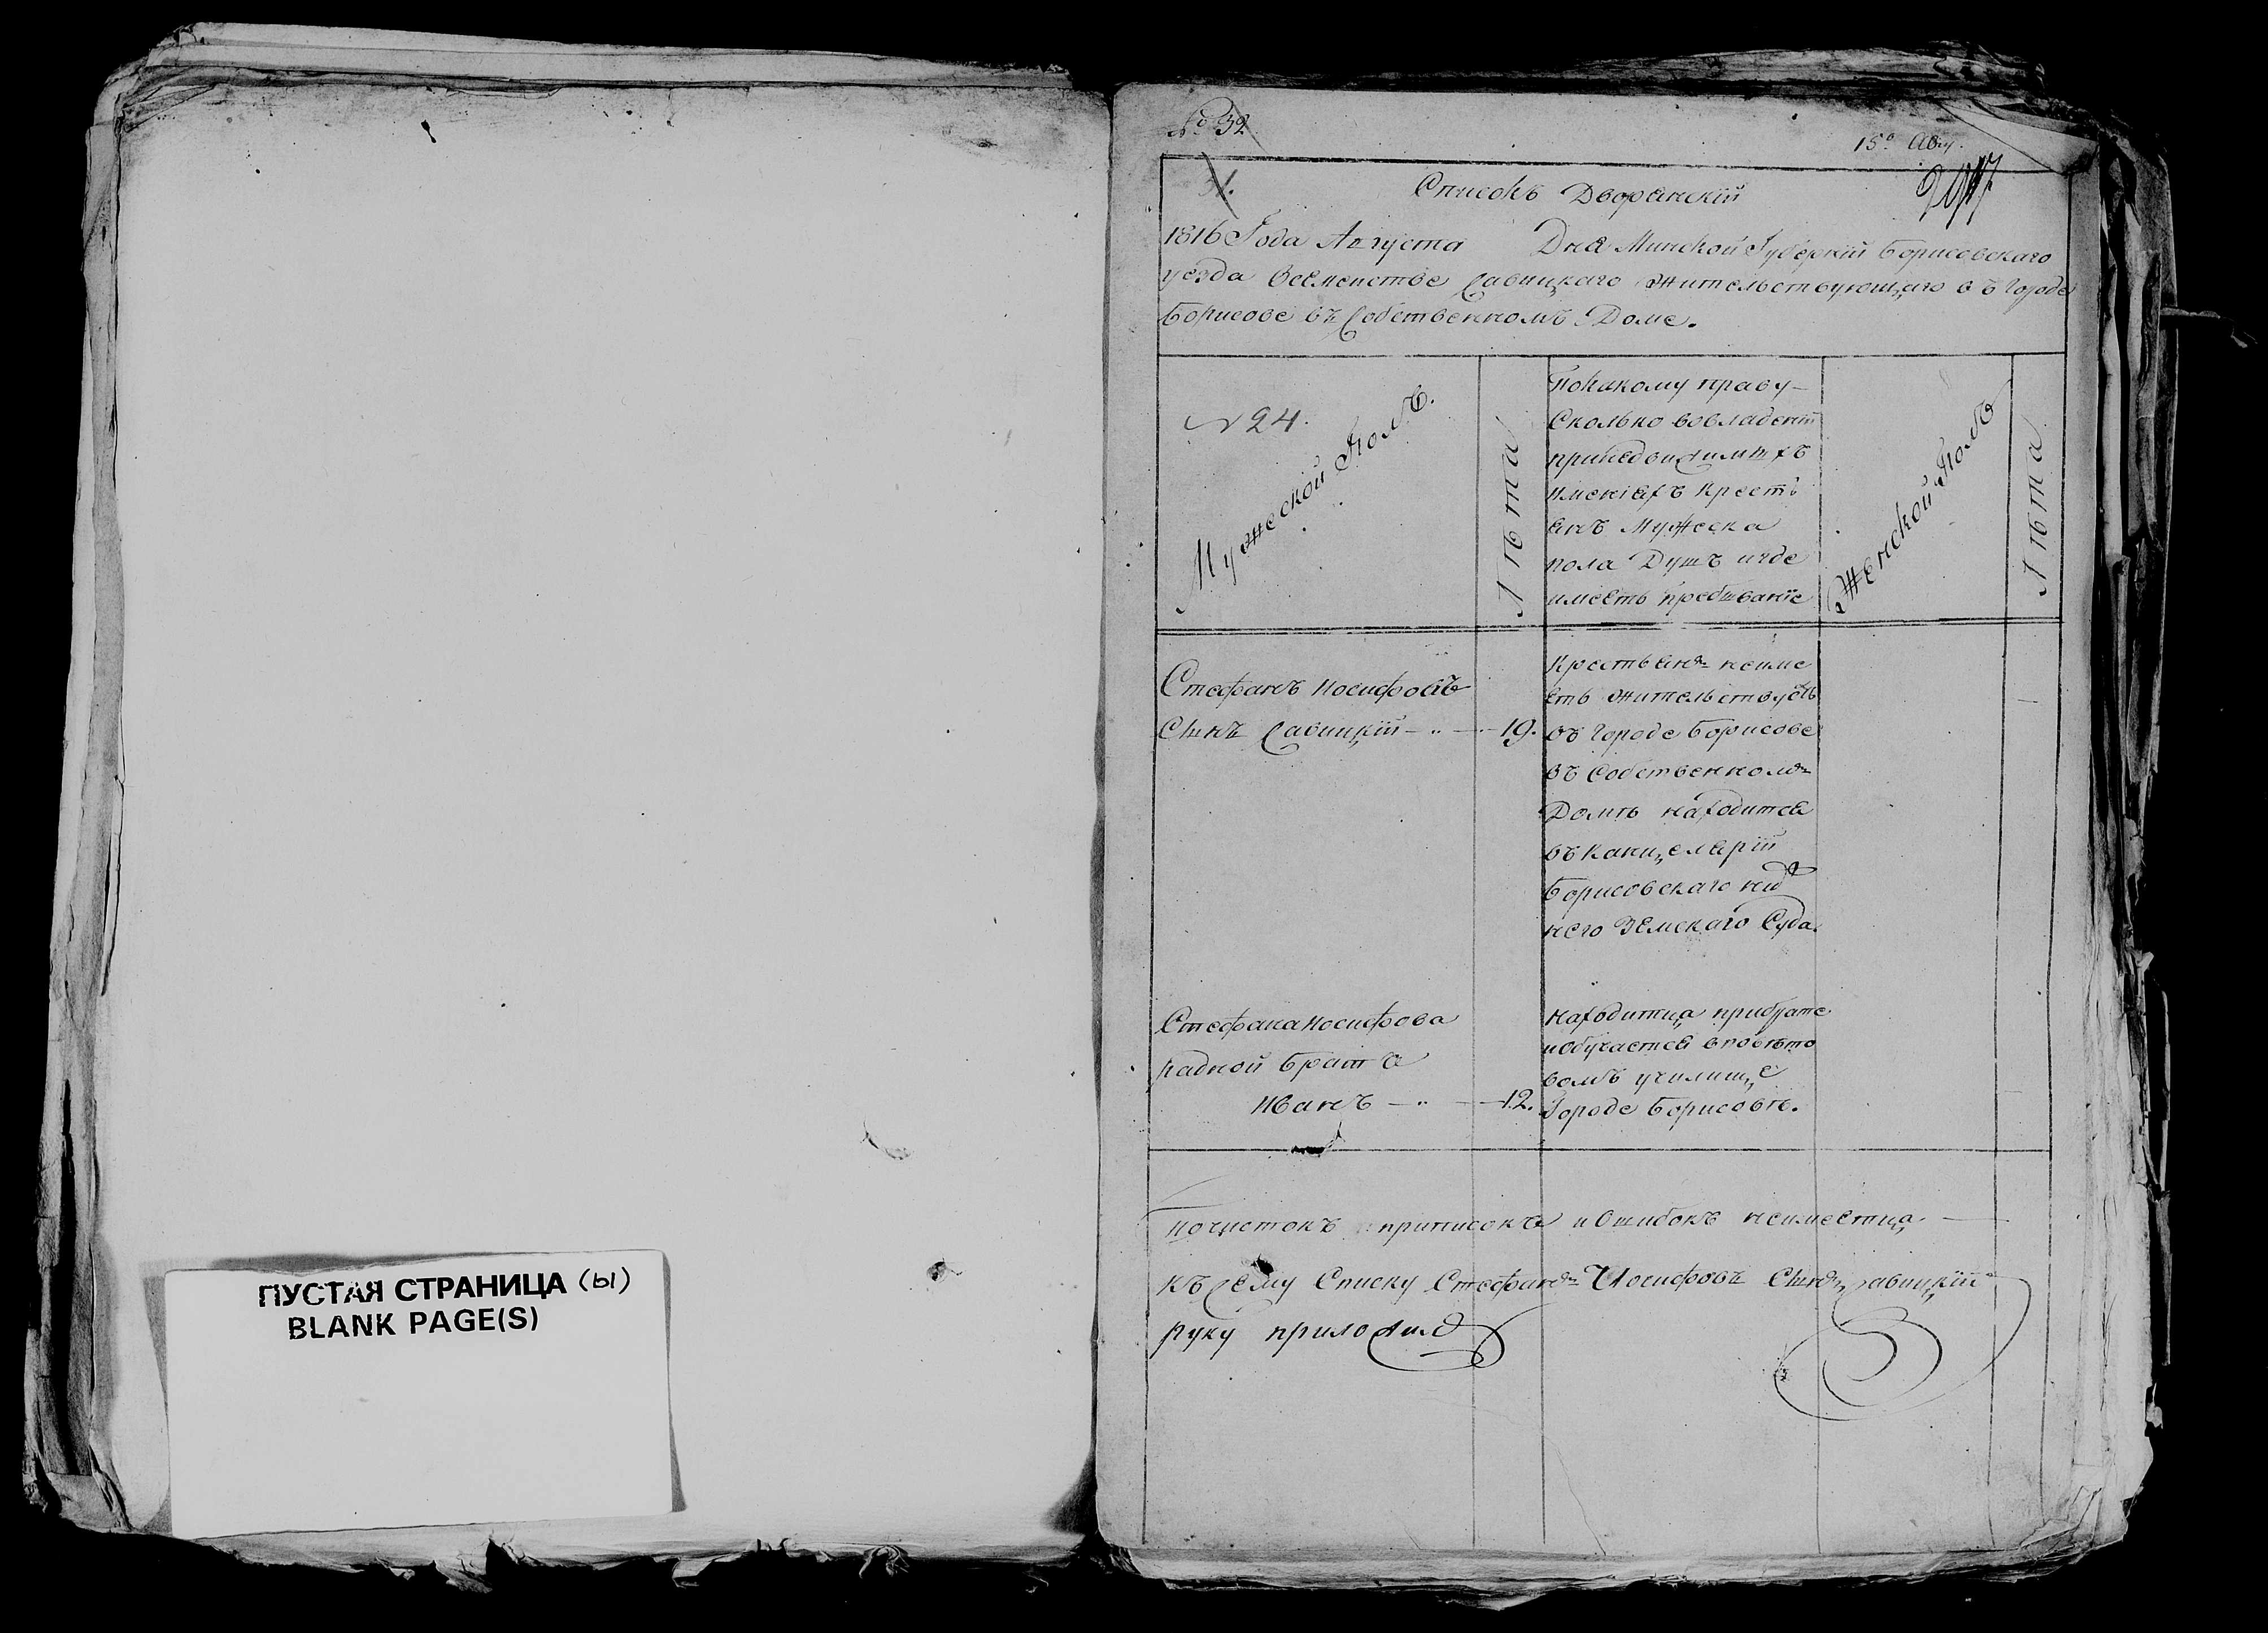 ПУСТАЯ СТРАНИЦА (Ы)
BLANK PAGE(S)
№ 32
15º Авгу.
31.
Списокъ Дворянскій
1816 Года Августа Дня Минской Губерніи Борисовскаго
уезда Осемействе Савицкаго жительствующаго въ Городе
Борисове въ Собственномъ Доме.
N 24.
Мужеской Полъ.
Лѣта
Покакому праву
Сколько вовладеніи
принедвижимыхъ
именіяхъ Кресть
янъ Мужеска
пола Душъ игде
имѣетъ пребываніе
Женской Полъ
Лѣта
Стефанъ Иосифовъ
Сынъ Савицкій 19.
Крестьянъ неиме
етъ жительствуетъ
въ Городе Борисове
въ Собственномъ
Домѣ находится
въ Канцеляріи
Борисовскаго ниж
него Земскаго Суда.
Стефана Иосифова
радной братъ
Иванъ 12.
находитца прибрате
иобучается вповѣто
вомъ училище
Городе Борисовѣ.
Почистокъ приписокъ иОшибокъ неимеетца
Къ Сему Списку Стефанъ Иосифовъ Сынъ Савицкій
руку приложилъ